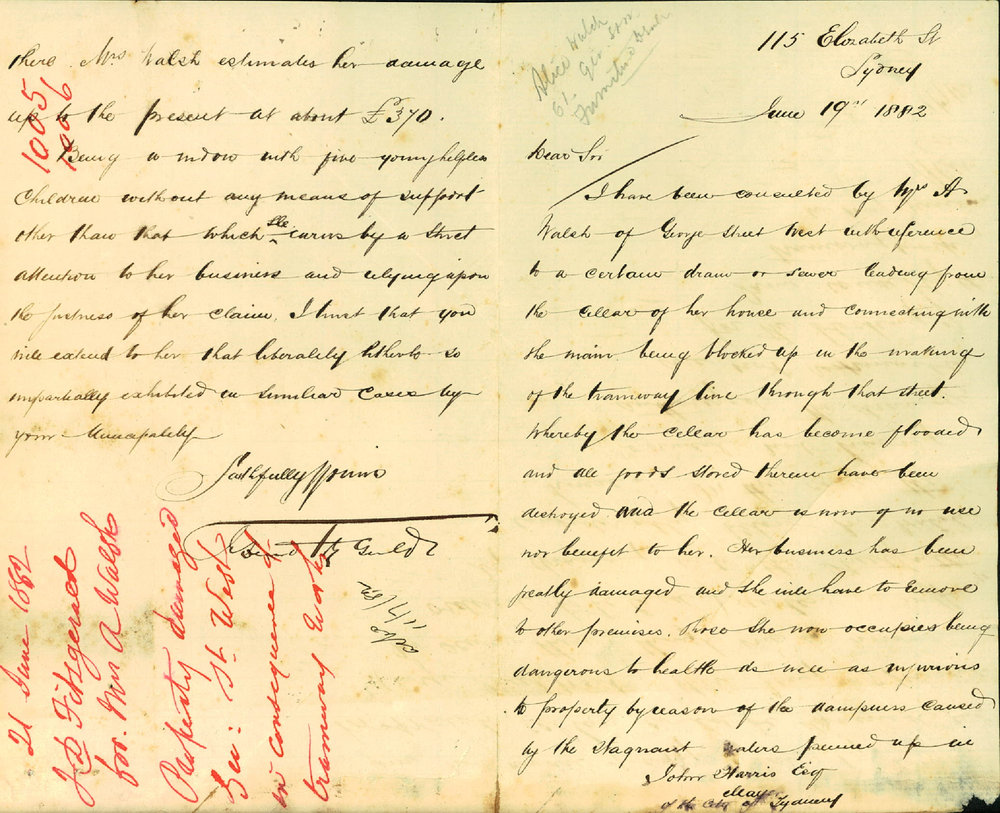 115 Elizabeth St
Sydney
June 19th 1882
Dear Sir
I have been consulted by Mrs A
Walsh of George Street West with reference
to a certain drain or sewer leading from
the cellar of her house and connecting with
the main being blocked up in the making
of the tramway line through that street.
Whereby the cellar has become flooded
and all goods stored therein have been
destroyed and the cellar is now of no use
nor benefit to her. Her business has been
greatly damaged and she will have to remove
to other premises. Those she now occupies being
dangerous to health as well as injurious
to property by reason of the dampness caused
by the stagnant waters penned up in
John Harris Esq
Mayor
of the City of Sydney
there. Mrs Walsh estimates her damage
up to the present at about £370.
Being a widow with five young helpless
Children without any means of support
other than that which she earns by a strict
attention to her business and relying upon
the justness of her claim, I trust that you
will extend to her that liberality hitherto so
impartially exhibited in similar cases by
your Municipality
Faithfully yours
1005
1006
Alice Walsh
61
Geo. St W
Furniture
21 June 1882
J D Fitzgerald
for. Mrs A Walsh
Property damaged
Geo: St. West
in consequence of
tramway works